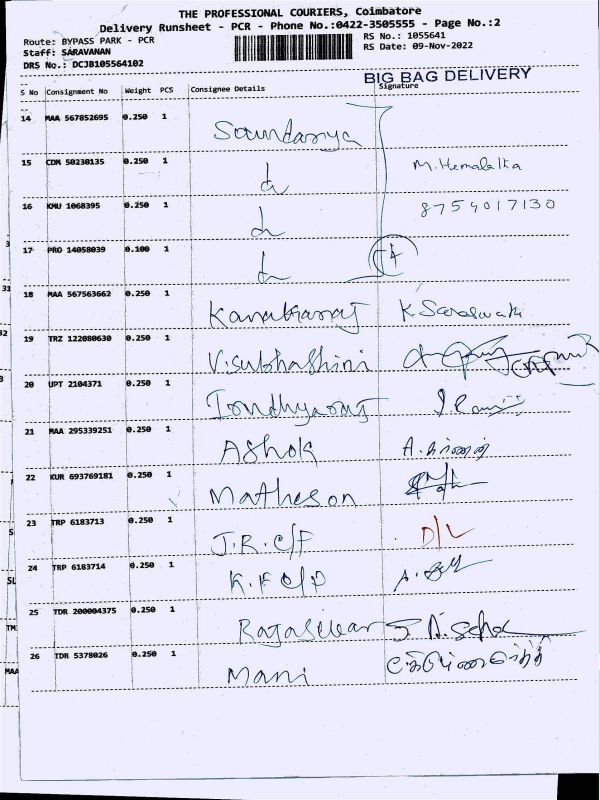 THE PROFESSIONAL COURIERS, Coimbatore
Delivery Runsheet - PCR - Phone No.:0422-3505555 - Page No.:2
Route: BYPASS PARK - PCR
RS No.: 1055641
Staff: SARAVANAN
RS Date: 09-Nov-2022
DRS No.: DCJB105564102
BIG BAG DELIVERY
S No Consignment No Weight PCS Consignee Details Signature
14 MAA 567852695 0.250 1 Soundarya
15 CDM 50230135 0.250 1 M. Hemalatha
16 KMU 1068395 0.250 1 8754017130
17 PRO 14058039 0.100 1
18 MAA 567563662 0.250 1 Kanakaraj K. Saraswathi
19 TRZ 122080630 0.250 1 V. Subhashini
20 UPT 2104371 0.250 1
21 MAA 295339251 0.250 1 Ashok
22 KUR 693769181 0.250 1 Matheson
23 TRP 6183713 0.250 1 J.R. C/F D/L
24 TRP 6183714 0.250 1
25 TDR 200004375 0.250 1
26 TDR 5378026 0.250 1 Mani